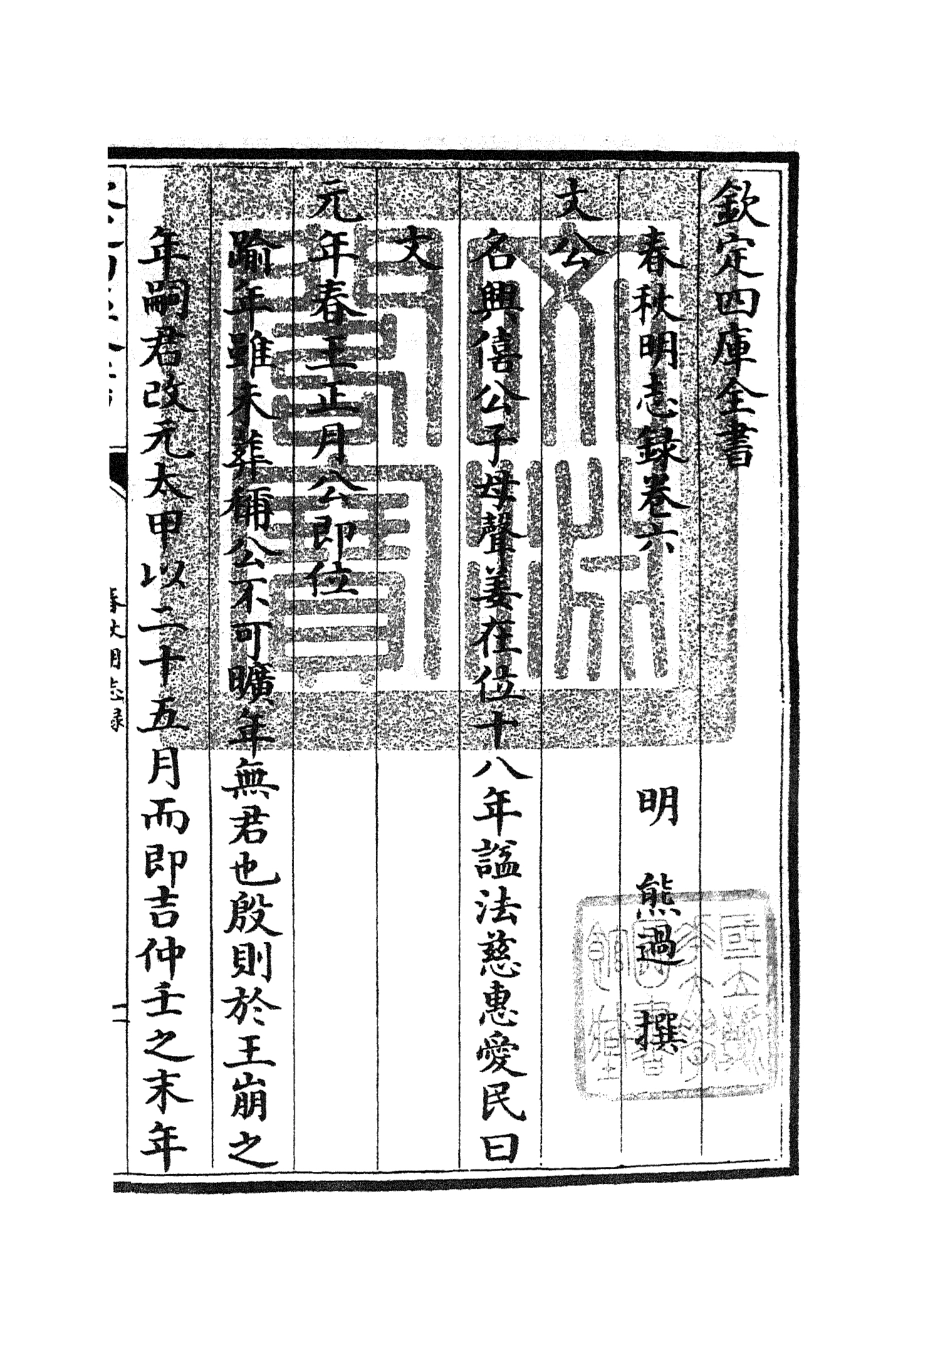 欽定四庫全書
春秋明志録卷六
明 熊過 撰
文公
名興僖公子母聲姜在位十八年諡法慈惠愛民曰
文
元年春王正月公即位
踰年雖未葬稱公不可曠年無君也殷則於王崩之
年嗣君改元太甲以二十五月而即吉仲壬之末年
春秋明志録